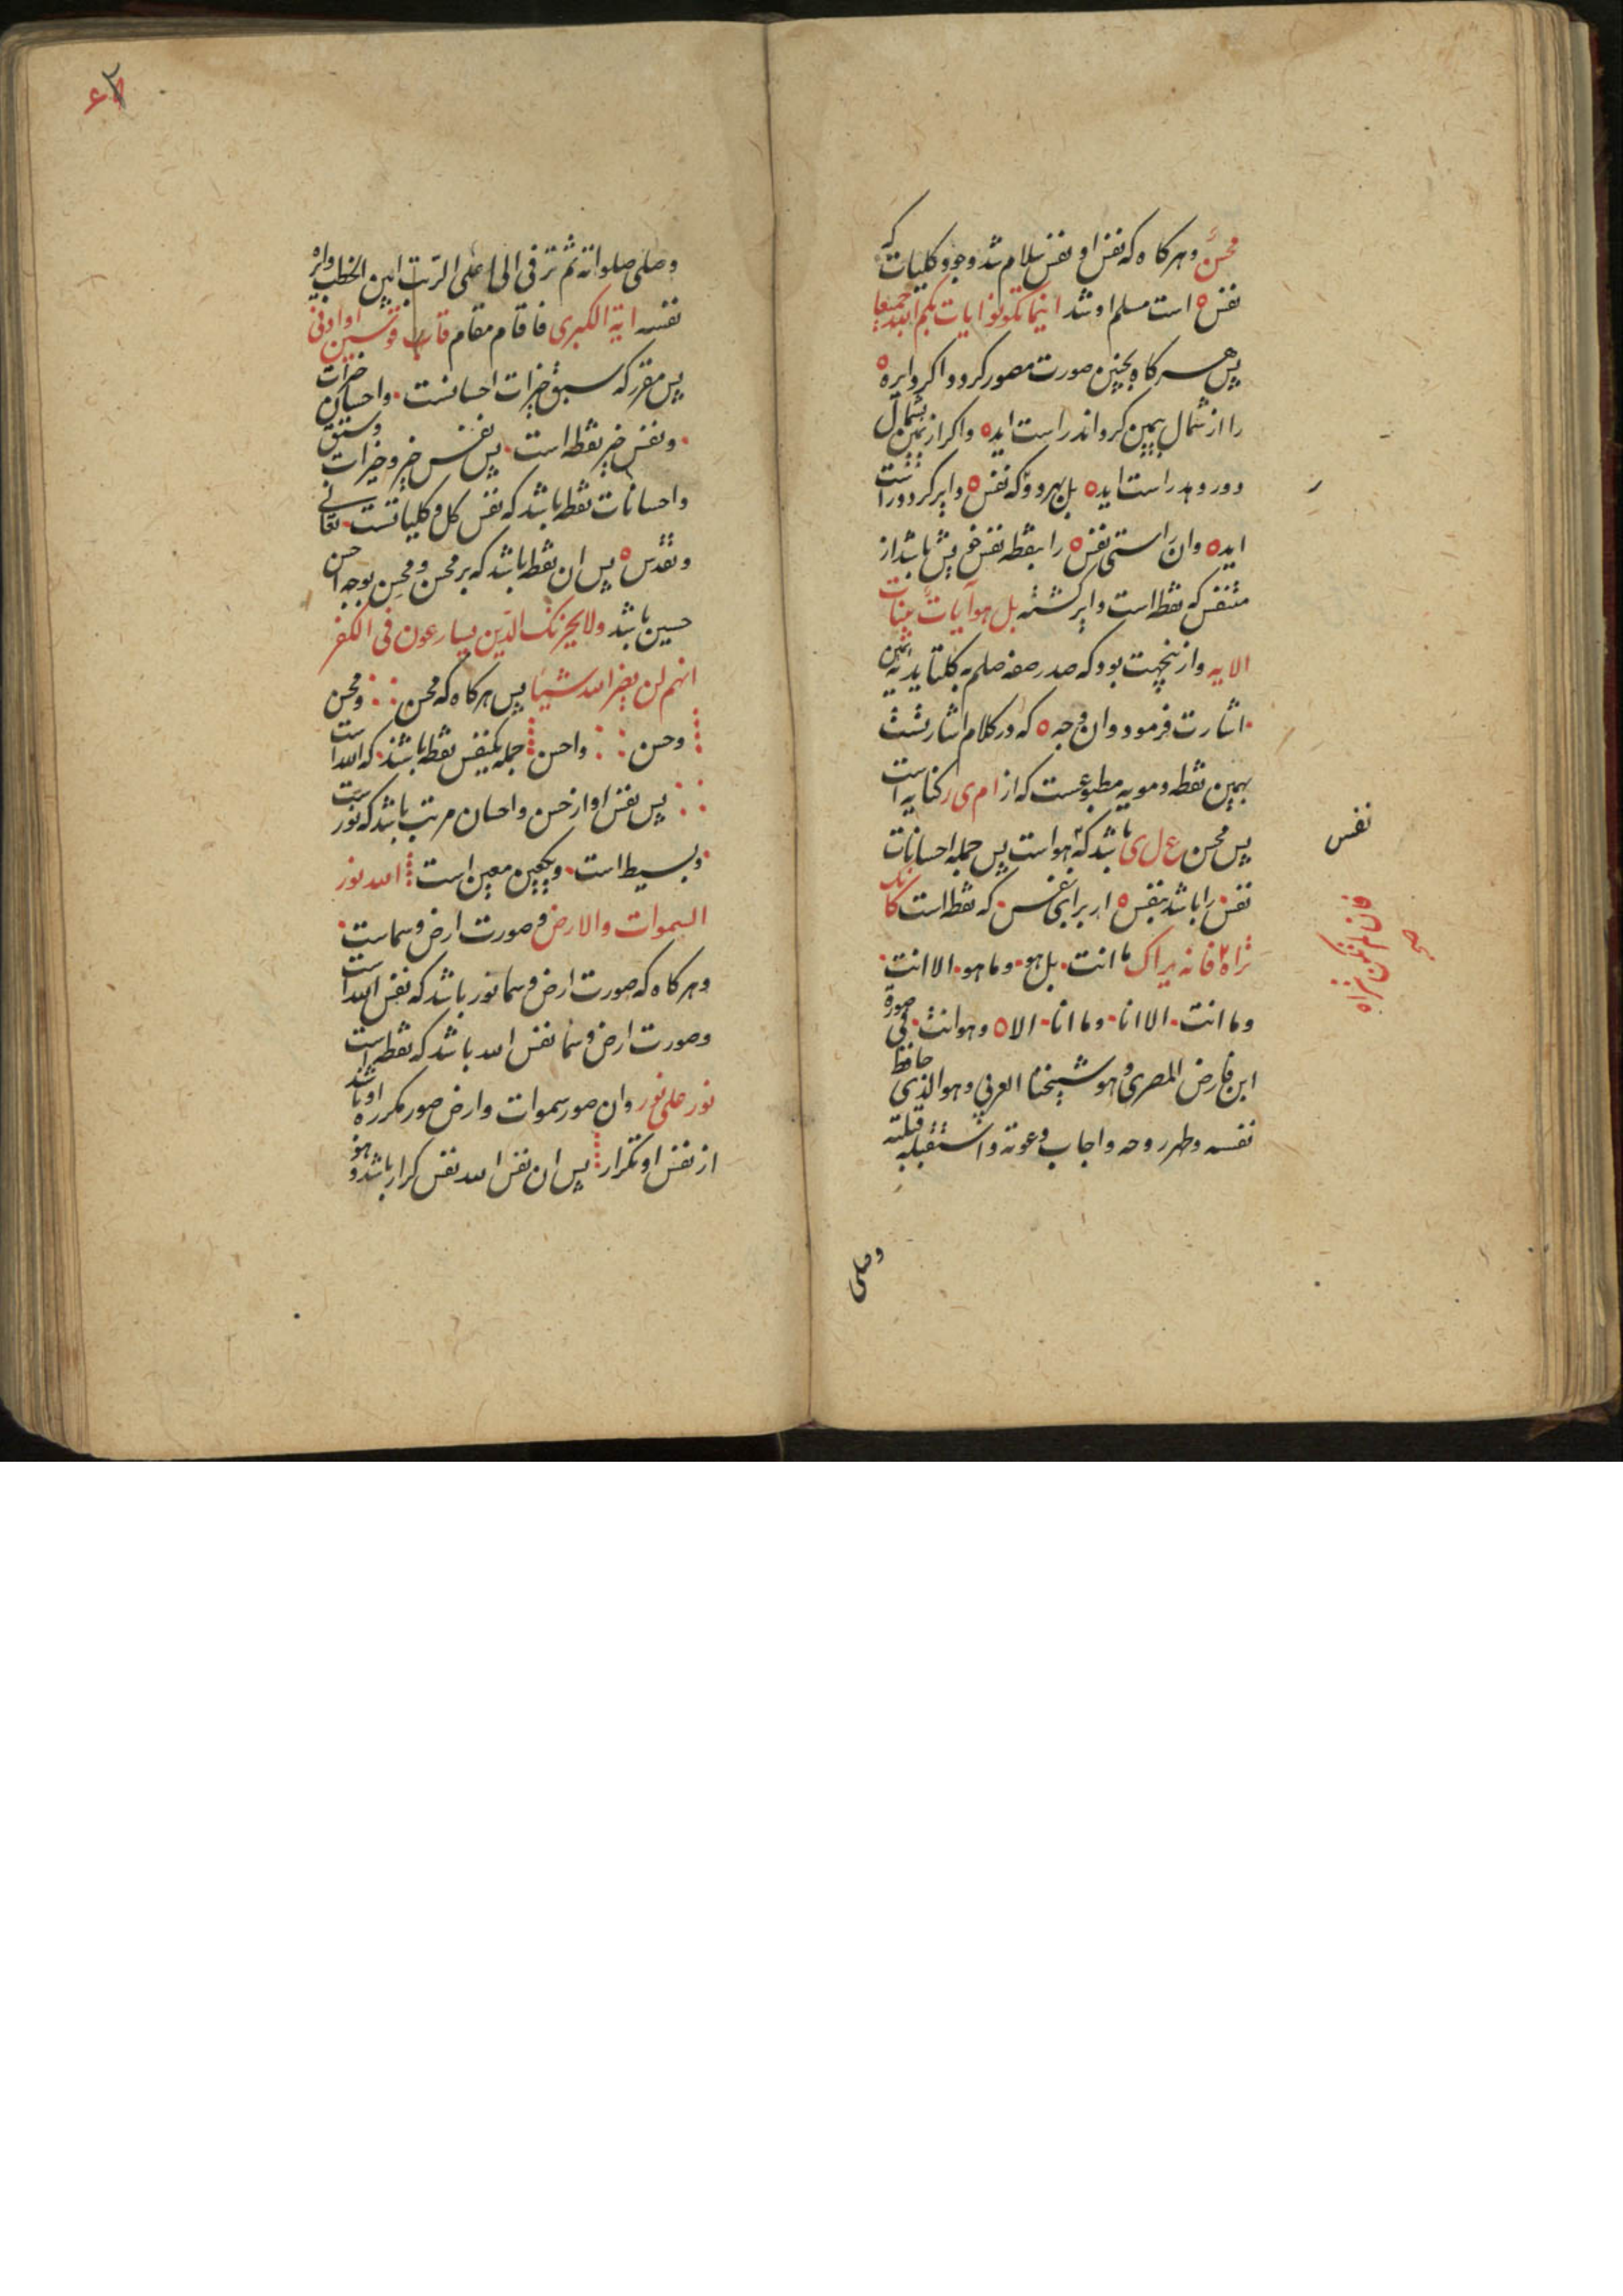 محسن وهر کاه که نفس او نفس سلام شد وجود کلیات که
نفس ه است مسلم او شد اینما تکونوا یات بکم الله جمیعا
پس هر کاه بچنین صورت مصور کردد اکر دایره ه
را از شمال بیمین کرداند راست اید ه واکر از یمین بشمال
دور دهد راست اید ه بل بهر دو که نفس ه دایر کردد راست
اید ه وان راستی نفس ه را بنقطه نفس خویش باشد از
متنفس که نقطه است دایر کشته بل هو آیات بینات
الایه واز ینجهت بود که صدر صفه صلم به کلتا یدیه یمین
اشارت فرمود وان وجه ه که در کلام اشارتست
بهمین نقطه و مویه مطبوعست که از ام ی ر کنایه است
پس محسن ع ل ی باشد که هو است پس جمله احسانات
نفس را باشد بنفس ه از برای نفس که نقطه است کانک
تراه فانه یراک ما انت بل هو وما هو الا انت
وما انت الا انا وما انا الا ه وهو انت فی صورة
ابن فارض المصری وهو شیخنا العربی وهو الذی حافظ
نفسه وطهر روحه واجاب دعوته واستقبله قبلته
وصلی
نفس
فان لم تکن تراه
صح
وصلی صلواته ثم ترقی الی اعلی الرتب این الخطب واره
نفسه ایة الکبری فاقام مقام قاب قوسین او ادنی
پس مقرر که سبق خیرات احسانست واحسان خیرات
ونفس خیر نقطه است پس نفس خیر وخیرات وسبق
واحسانات نقطه باشد که نفس کل وکلیاتست تعالی
وتقدس ه پس ان نقطه باشد که بر محسن ومحسن بوجه احسن
حسین باشد ولا یحزنک الذین یسارعون فی الکفر
انهم لن یضر الله شیئا پس هر کاه که محسن ومحسن
وحسن واحسن جمله یکنفس نقطه باشند که الله است
پس نفس او از حسن واحسان مرتب باشد که نورست
وبسیط است ویکچین معین است الله نور
السموات والارض وصورت ارض وسماست
وهر کاه که صورت ارض وسما نور باشد که نفس الله است
وصورت ارض وسما نفس الله باشد که نقطه است
نور علی نور وان صور سموات وارض صور مکرره او باشد
از نفس او تکرار پس ان نفس الله نفس کرار باشد وهو